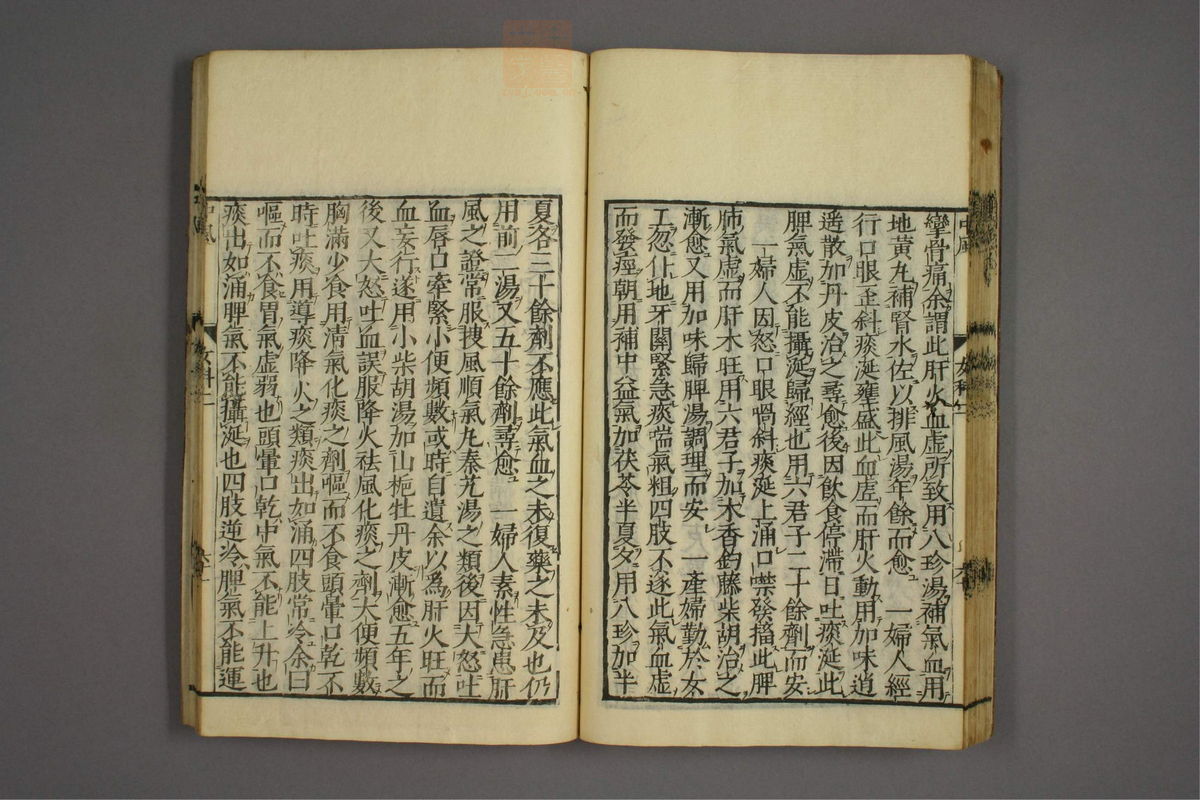 攣骨痛余謂此肝火血虛所致用八珍湯補氣血用
地黃丸補腎水佐以排風湯年餘而愈 一婦人經
行口眼歪斜痰涎壅盛此血虛而肝火動用加味逍
遙散加丹皮治之尋愈後因飲食停滯日吐痰涎此
脾氣虛不能攝涎歸經也用六君子二十餘劑而安
一婦人因怒口眼喎斜痰涎上涌口噤發搐此脾
肺氣虛而肝木旺用六君子加木香鈎藤柴胡治之
漸愈又用加味歸脾湯調理而安 一產婦勤於女
工忽仆地牙關緊急痰喘氣粗四肢不遂此氣血虛
而發痙朝用補中益氣加茯苓半夏夕用八珍加半
中風
女科二
夏各三十餘劑不應此氣血之未復藥之未及也仍
用前二湯又五十餘劑尋愈 一婦人素性急患肝
風之證常服搜風順氣丸秦艽湯之類後因大怒吐
血唇口牽緊小便頻數或時自遺余以為肝火旺而
血妄行遂用小柴胡湯加山梔牡丹皮漸愈五年之
後又大怒吐血誤服降火祛風化痰之劑大便頻數
胸滿少食用清氣化痰之劑嘔而不食頭暈口乾不
時吐痰用導痰降火之類痰出如涌四肢常冷余曰
嘔而不食胃氣虛弱也頭暈口乾中氣不能上升也
痰出如涌脾氣不能攝涎也四肢逆冷脾氣不能運
女科二